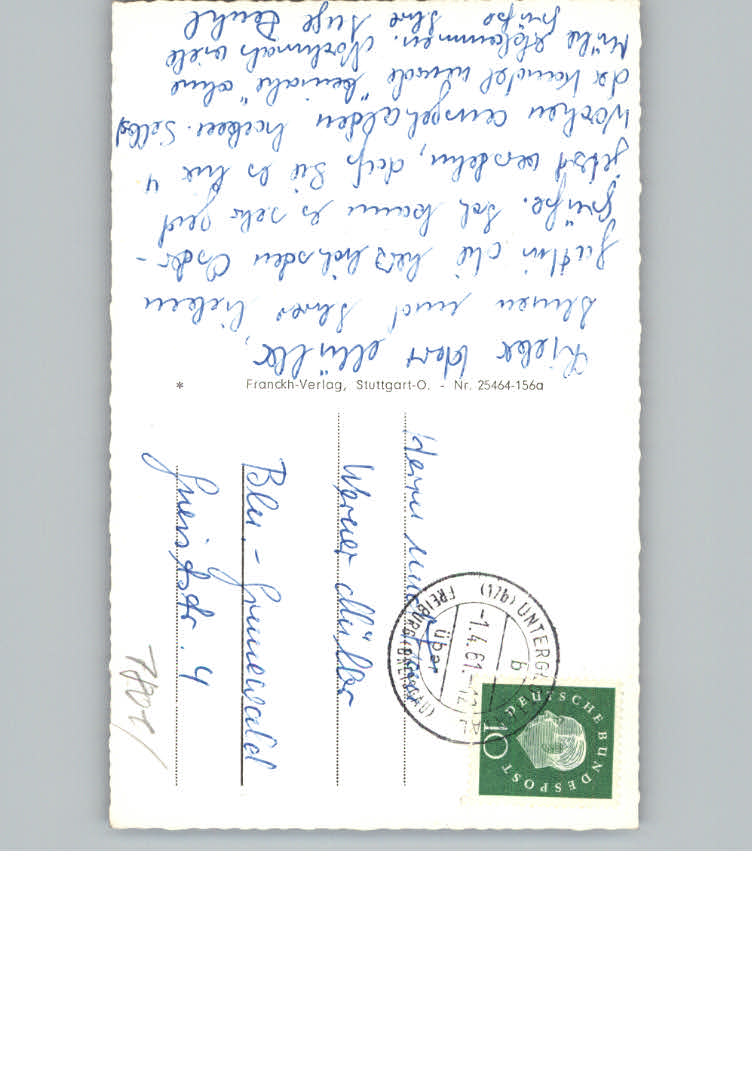 Lieber Herr Müller,
Ihnen und Ihrer lieben
Gattin die herzlichsten Oster-
grüße. Ich kann es sehr gut
jetzt verstehn, daß Sie es nur 4
Wochen ausgehalten haben. Selbst
der Kandel wurde "beinahe" ohne
Mühe erklommen. Nochmals viele
Grüße Ihre Inge
Franckh-Verlag, Stuttgart-O. - Nr. 25464-156a
*
Herrn
Werner Müller
Bln. - Grunewald
4
7802/
(17b) UNTERGL
über
FREIBURG (BREISGAU)
-1.4.61.-12
b
DEUTSCHE BUNDESPOST
10